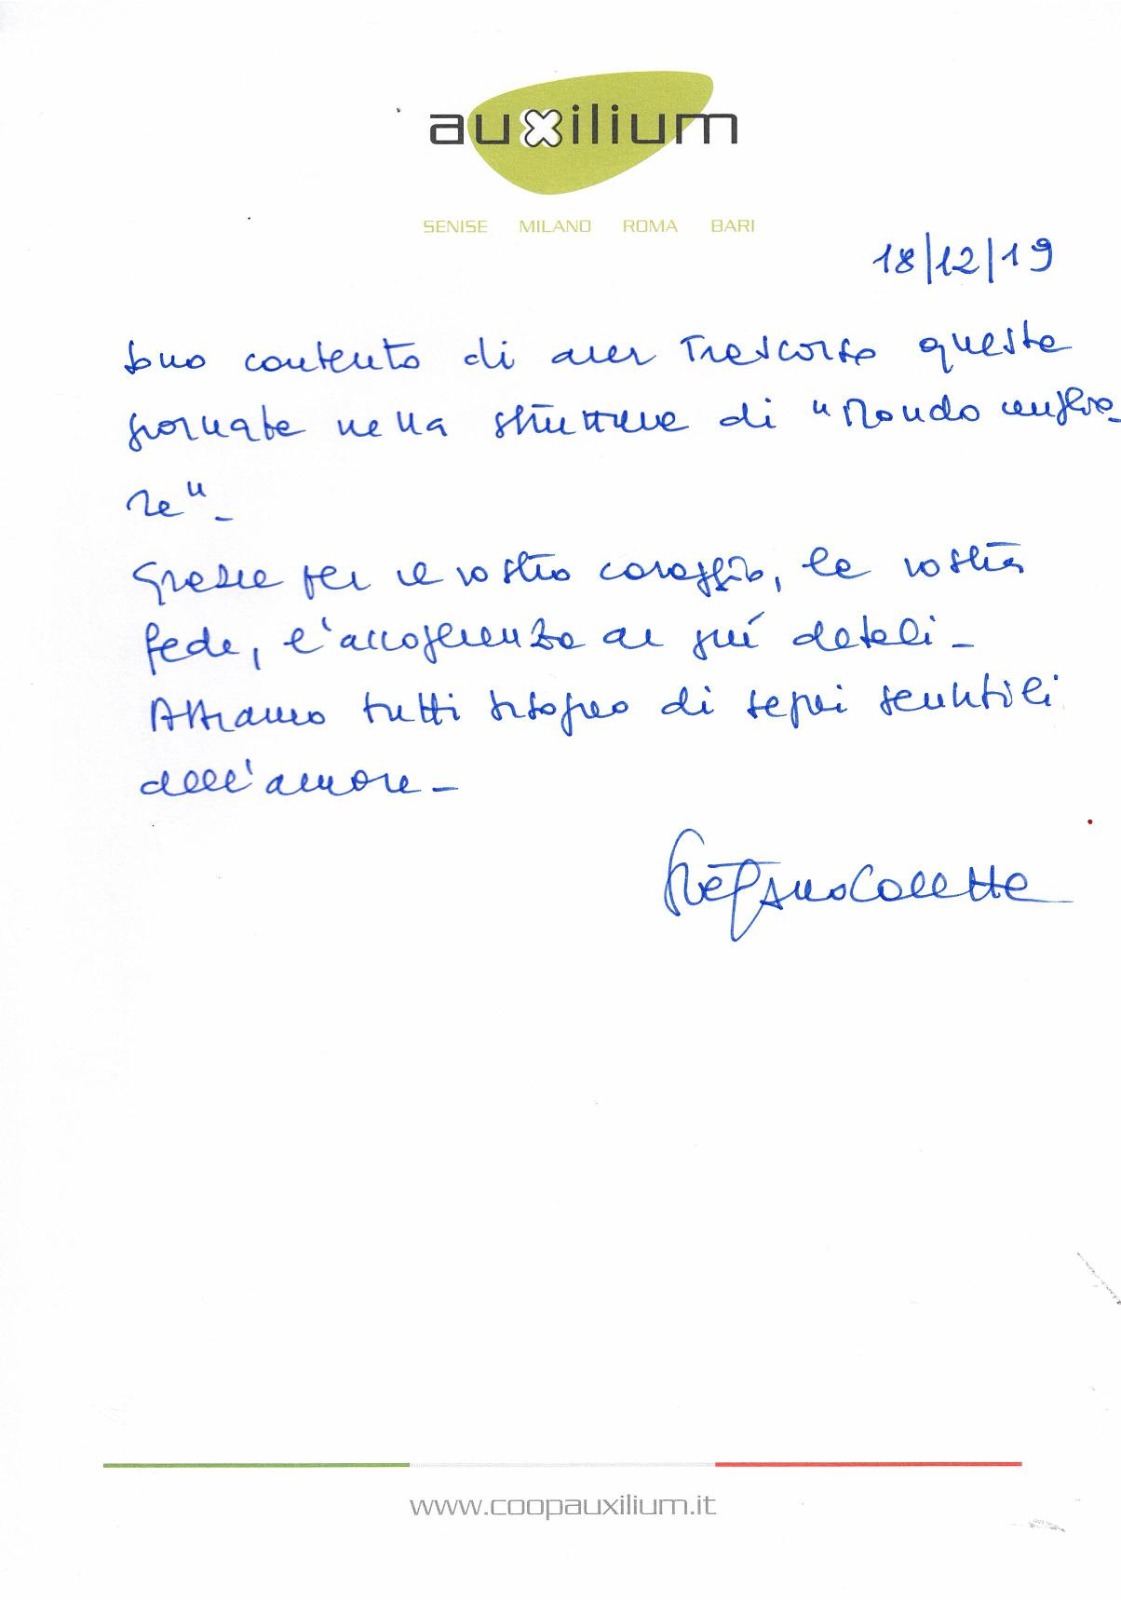 auxilium
SENISE MILANO ROMA BARI
18/12/19
Sono contento di aver trascorso queste
giornate nella struttura di "Mondo miglio-
re"-
Grazie per il vostro coraggio, la vostra
fede, l'accoglienza ai più deboli-
Abbiamo tutti bisogno di segni sensibili
dell'amore-
Stefano Coletta
www.coopauxilium.it